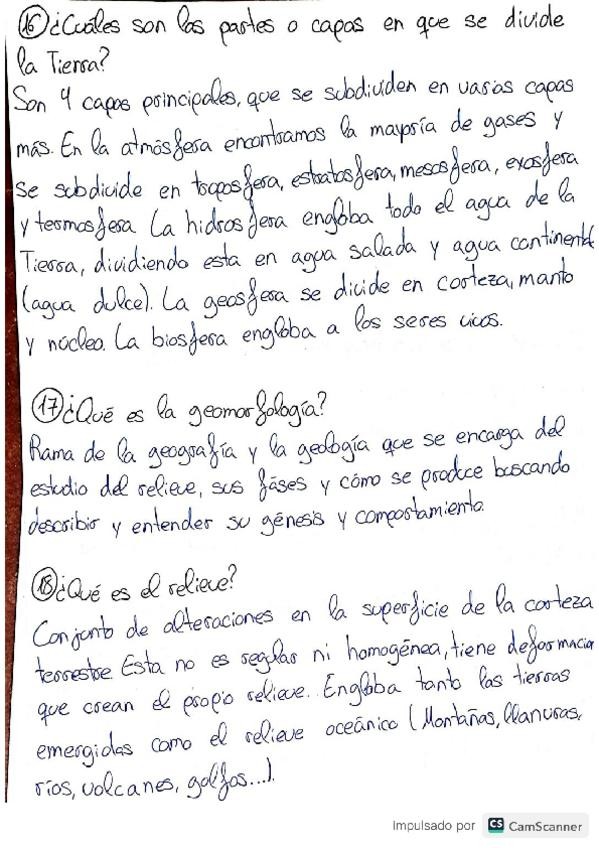 16 ¿Cuáles son las partes o capas en que se divide
la Tierra?
Son 4 capas principales, que se subdividen en varias capas
más. En la atmósfera encontramos la mayoría de gases y
se subdivide en troposfera, estratosfera, mesosfera, exosfera
y termosfera. La hidrosfera engloba toda el agua de la
Tierra, dividiendo esta en agua salada y agua continental
(agua dulce). La geosfera se divide en corteza, manto
y núcleo. La biosfera engloba a los seres vivos.
17 ¿Qué es la geomorfología?
Rama de la geografía y la geología que se encarga del
estudio del relieve, sus fáses y cómo se produce buscando
describir y entender su génesis y comportamiento.
18 ¿Qué es el relieve?
Conjunto de alteraciones en la superficie de la corteza
terrestre. Esta no es regular ni homogénea, tiene deformacion
que crean el propio relieve. Engloba tanto las tierras
emergidas como el relieve oceánico (Montañas, llanuras,
ríos, volcanes, golfos...).
Impulsado por CS CamScanner